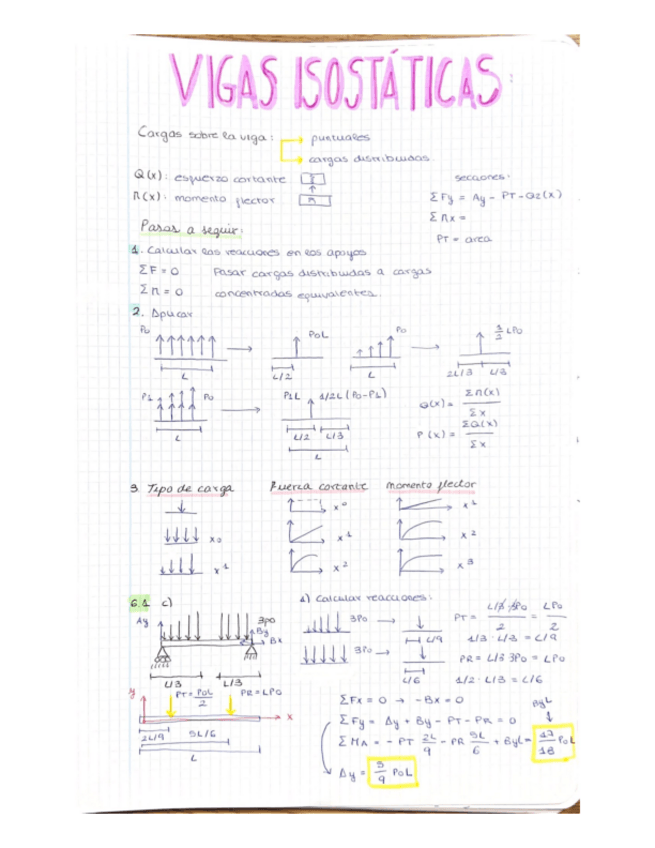 VIGAS ISOSTÁTICAS:
Cargas sobre la viga: puntuales
cargas distribuidas.
Q(x): esfuerzo cortante
M(x): momento flector
secciones:
ΣFy = Ay - PT - Qz(x)
ΣMx =
PT = area
Pasos a seguir:
1. Calcular las reacciones en los apoyos
ΣF = 0 Pasar cargas distribuidas a cargas
ΣM = 0 concentradas equivalentes.
2. Aplicar
P0 P0L P0 1/2 LP0
L L/2 L 2L/3 L/3
P1 P0 P1L 1/2L(P0-P1)
L L/2 L/3
L
Q(x) = ΣM(x)/Σx
P(x) = ΣQ(x)/Σx
3. Tipo de carga Fuerza cortante momento flector
x^0 x^1
x0 x^1 x^2
x^1 x^2 x^3
6.1 c)
Ay 3P0
By
Bx
L/3 L/3
y PT = P0L/2 PR = LP0
x
2L/9 5L/6
L
1) Calcular reacciones:
3P0 L/9
PT = L/3·3P0/2 = LP0/2
1/3·L/3 = L/9
3P0 L/6
PR = L/3 3P0 = LP0
1/2·L/3 = L/6
ΣFx = 0 → -Bx = 0
ΣFy = Ay + By - PT - PR = 0
ByL
ΣMA = -PT 2L/9 - PR 5L/6 + ByL = 17/18 P0L
Ay = 5/9 P0L